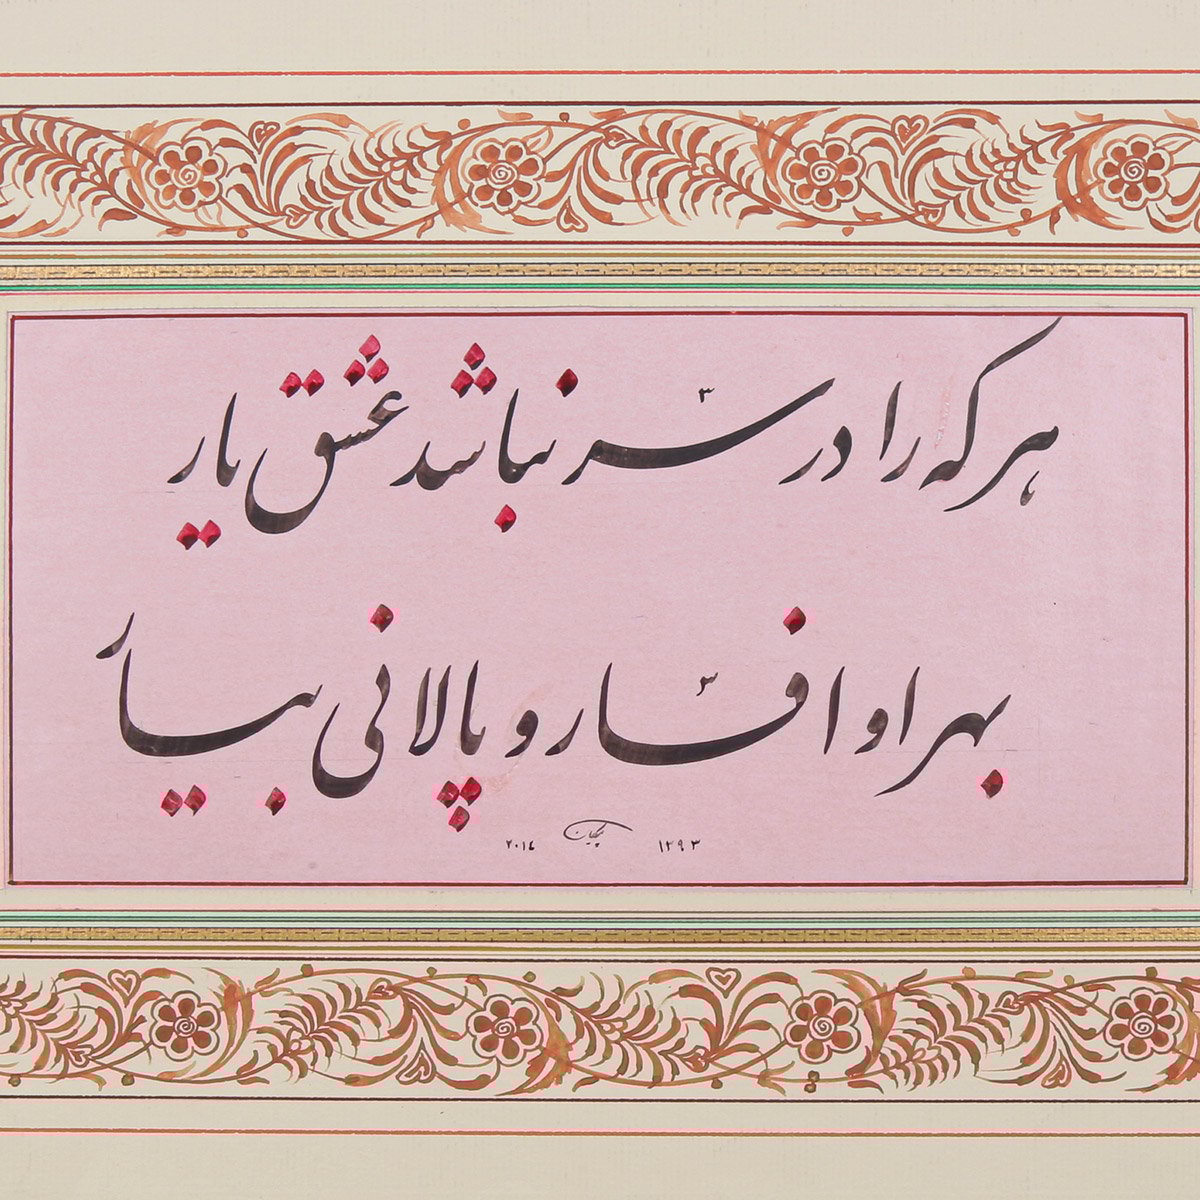 هر که را در سر نباشد عشق یار
بهر او افسار و پالانی بیار
۱۳۹۳ ۲۰۱۴